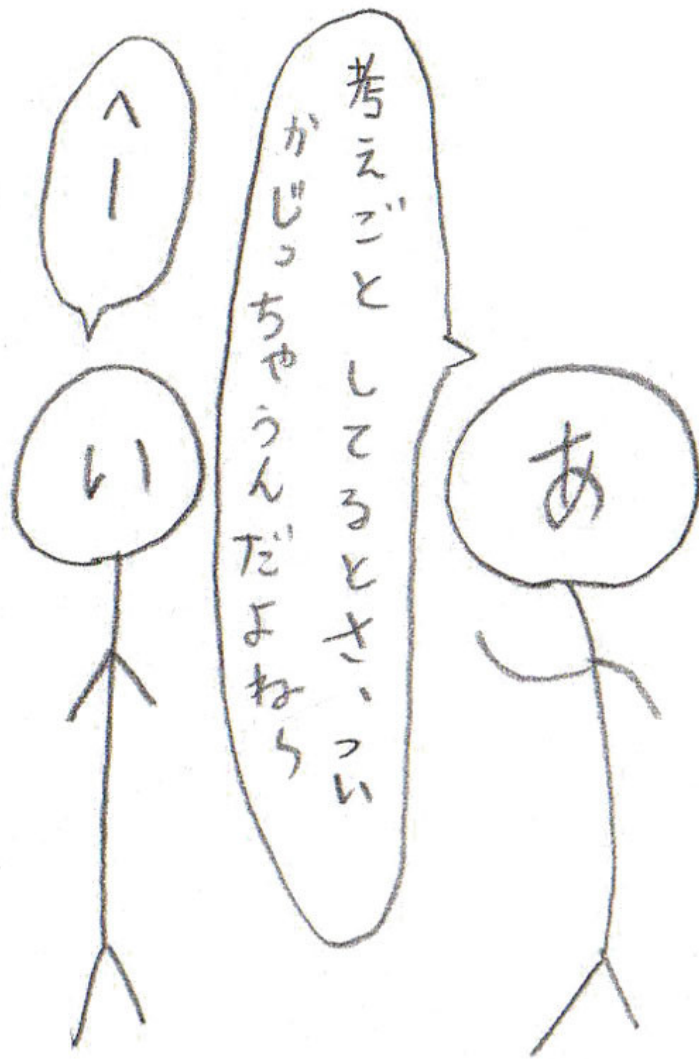 考えごとしてるとさ、つい
かじっちゃうんだよね〜
あ
へー
い